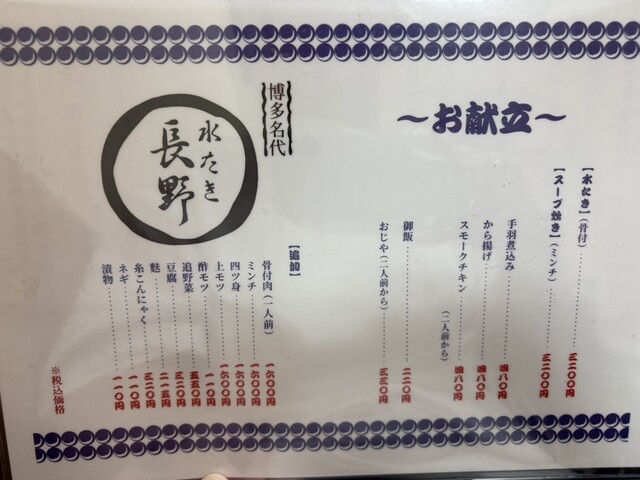 ～お献立～
【水たき】（骨付）…三二〇〇円
【スープ炊き】（ミンチ）…三二〇〇円
手羽煮込み…四八〇円
から揚げ…四八〇円
スモークチキン…四八〇円
（二人前から）
御飯…二二〇円
おじや（二人前から）…三三〇円
博多名代
水たき
長野
【追加】
骨付肉（一人前）…一六〇〇円
ミンチ…一六〇〇円
四ツ身…一六〇〇円
上モツ…一六〇〇円
酢モツ
追野菜…五五〇円
豆腐…三二〇円
麩
糸こんにゃく…三二〇円
ネギ…一一〇円
漬物…一一〇円
※税込価格